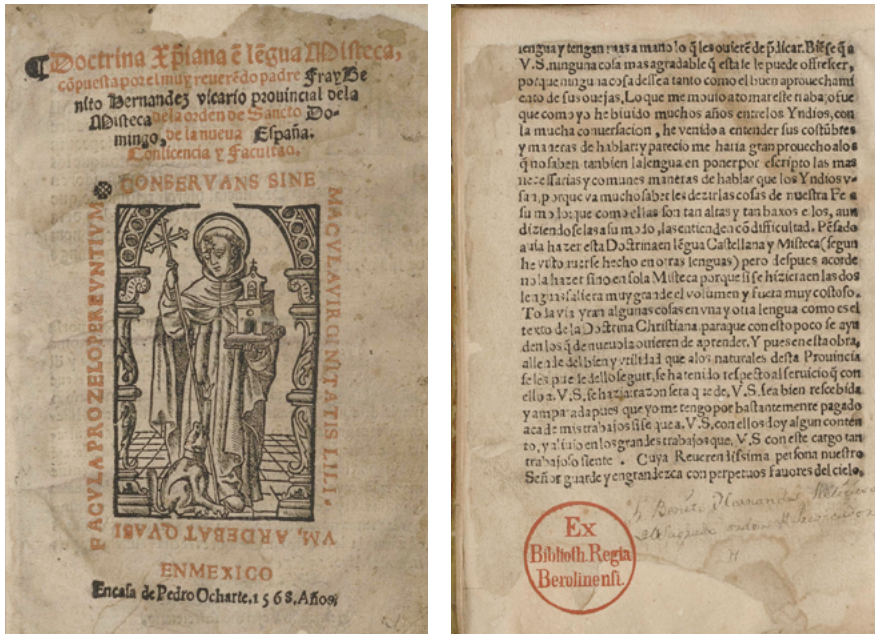 Doctrina Xp̄iana ē lēgua Misteca,
cōpuesta por el muy reuerēdo padre Fray Be
nito Hernandez vicario prouincial dela
Misteca dela orden de Sancto Do-
mingo, de la nueua España.
Con licencia y Facultad.
CONSERVANS SINE
MACVLA VIRGINITATIS LILI-
VM. ARDEBAT QVASI
FACVLA PRO ZELO PEREVNTIVM
EN MEXICO
En casa de Pedro Ocharte. 1568. Años.
lengua y tengan mas a mano lo q̄ les quierē de p̄dicar. Biē se q̄ a
V.S. ninguna cosa mas agradable q̄ esta se le puede offrescer,
porque ninguna cosa dessea tanto como el buen aprouechami
ento de sus ouejas. Lo que me mouio a tomar este trabajo fue
que como yo he biuido muchos años entre los Yndios, con
la mucha conuersacion, he venido a entender sus costūbres
y maneras de hablar: y parecio me haria gran prouecho a los
q̄ no saben tan bien la lengua en poner por escripto las mas
necessarias y comunes maneras de hablar que los Yndios v-
san, porque va mucho saber les dezir las cosas de nuestra Fe a
su modo: que como ellas son tan altas y tan baxos ellos, aun
diziendo se las a su modo, las entienden cō difficultad. Pēsado
auia hazer esta Doctrina en lēgua Castellana y Misteca (segun
he visto auerse hecho en otras lenguas) pero despues acorde
no la hazer sino en sola Misteca porque si se hiziera en las dos
lenguas saliera muy grande el volumen y fuera muy costoso.
Toda via yran algunas cosas en vna y otra lengua como es el
texto de la Doctrina Christiana. para que con esto poco se ayu
den los q̄ de nueuo la quieren de aprender. Y pues en esta obra,
allende del bien y vtilidad que a los naturales desta Prouincia
se les puede dello seguir, se ha tenido respecto al seruicio q̄ con
ello a. V.S. se haziarazon sera q̄ de. V.S. sea bien rescebida
y amparada pues que yo me tengo por bastantemente pagado
aca de mis trabajos si se que a. V.S. con ellos doy algun contēn
to, y aliuio en los grandes trabajos que. V.S. con este cargo tan
trabajoso siente. Cuya Reuerendissima persona nuestro
Señor guarde y engrandezca con perpetuos fauores del cielo.
Benito Hernandez
Ex
Biblioth. Regia
Berolinensi.